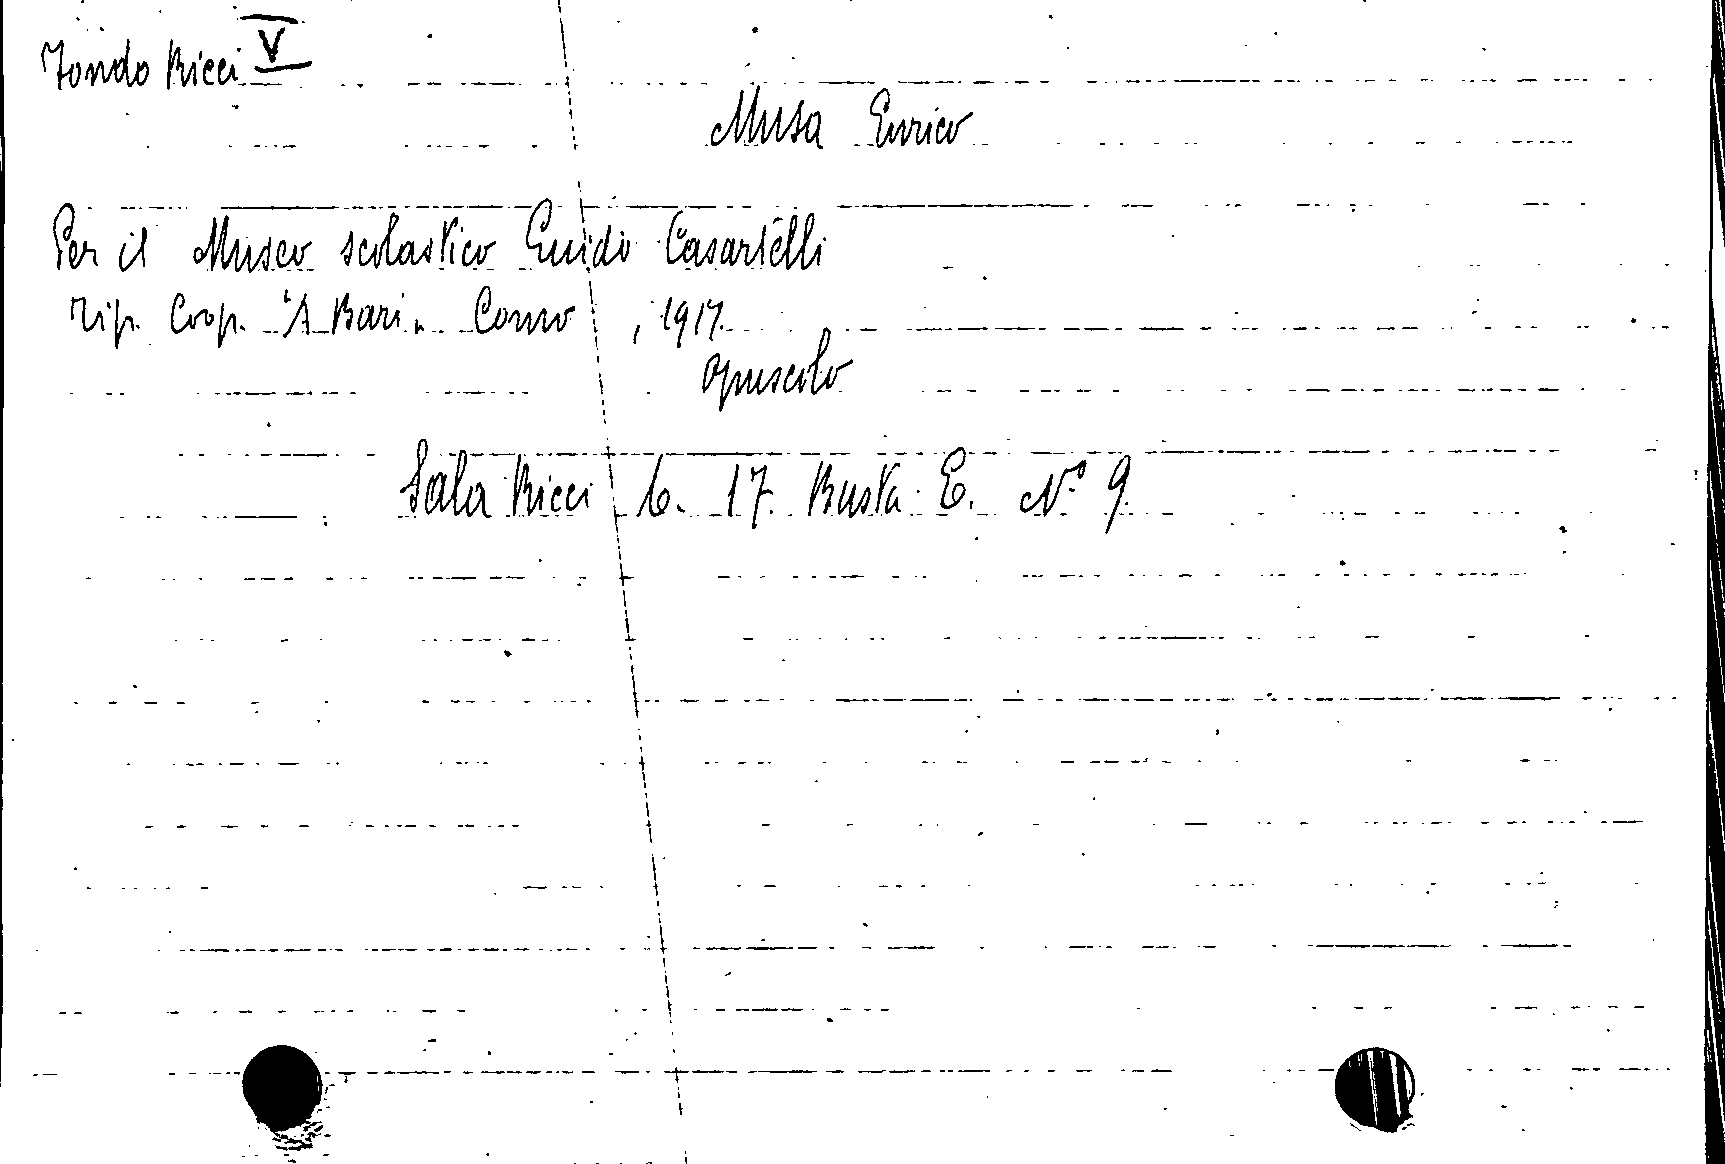 Fondo Ricci V
Musa Enrico
Per il Museo scolastico Guido Casartelli
Tip. Coop. "A Bari" Como , 1917
opuscolo
Sala Ricci b. 17. Busta E. N.° 9.